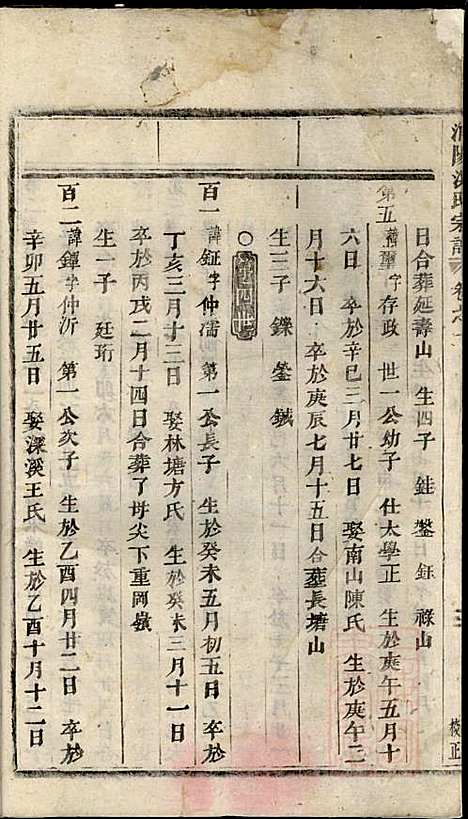 宗譜 卷之
日合葬延壽山 生四子 鉒 鏊 鉦 祿山
第五 諱 字存政 世一公幼子 仕太學正 生於庚午五月十
六日 卒於辛巳三月廿七日 娶南山陳氏 生於庚午二
月十六日 卒於庚辰七月十五日合葬長塘山
生三子 鑠 鎣 鉞
○
百一 諱鉦字仲濡 第一公長子 生於癸未五月初五日 卒於
丁亥三月十二日 娶林塘方氏 生於癸未三月十一日
卒於丙戌二月十四日合葬了坳尖下重岡嶺
生一子 廷珩
百二 諱鐸字仲沂 第一公次子 生於乙酉四月廿二日 卒於
辛卯五月廿五日 娶深溪王氏 生於乙酉十月十二日
校正